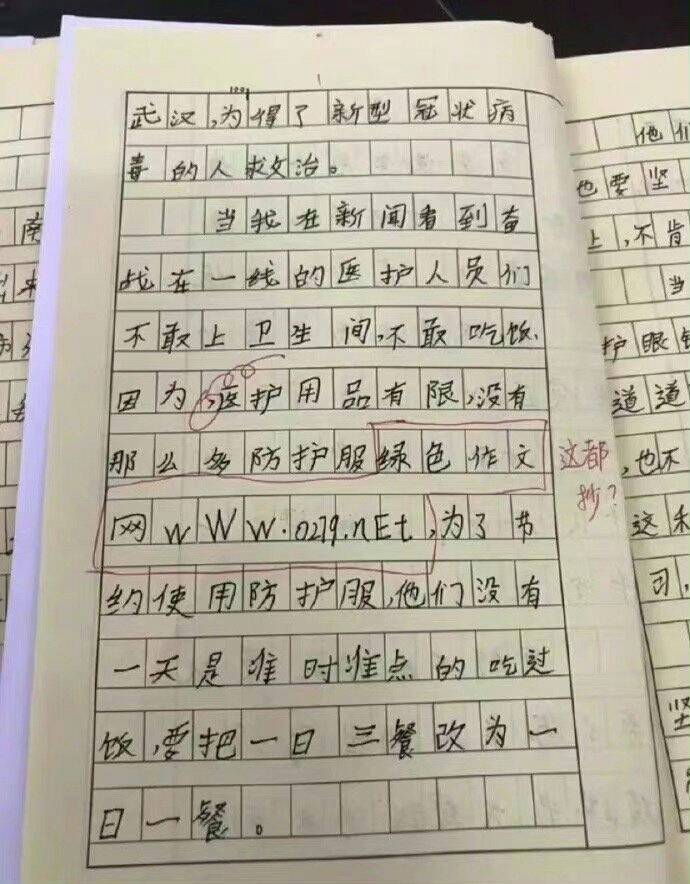 武汉,为得了新型冠状病
毒的人求治。
当我在新闻看到奋
战在一线的医护人员们
不敢上卫生间,不敢吃饭.
因为,医护用品有限,没有
那么多防护服绿色作文
网wWw.0279.nEt,为了节
约使用防护服,他们没有
一天是准时准点的吃过
饭,要把一日三餐改为一
日一餐。
这都
抄?
南
他们
也要坚
上,不肯
当
护眼
道道
,也不
这和
习,
坚